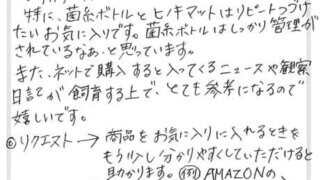 特に、菌糸ボトルとヒノキマットはリピートっづけ
たいお気に入りです。菌糸ボトルはしっかり管理が
されているなぁ、と思っています。
また、ネットで購入すると入ってくるニュースや観察
日記が飼育する上で、とても参考になるので
嬉しいです。
◎リクエスト→商品をお気に入りに入れるときを
もう少し分かりやすくしていただけると
助かります。(例)AMAZONの、